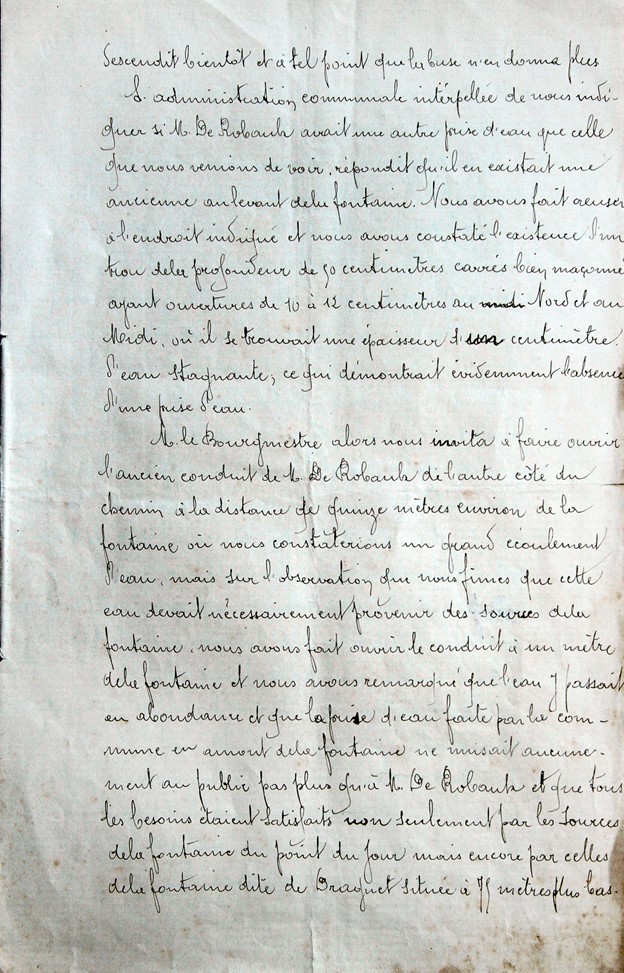 descendit bientôt et à tel point que la buse n'en donna plus
L'administration communale interpellée de nous indi-
quer si M. De Robaulx avait une autre prise d'eau que celle
que nous venions de voir, répondit qu'il en existait une
ancienne au levant de la fontaine. Nous avons fait creuser
à l'endroit indiqué et nous avons constaté l'existence d'un
trou de la profondeur de 50 centimètres carrés bien maçonné
ayant ouvertures de 10 à 12 centimètres au midi Nord et au
Midi, où il se trouvait une épaisseur d'un centimètre
d'eau stagnante, ce qui démontrait évidemment l'absence
d'une prise d'eau.
M. le Bourgmestre alors nous invita à faire ouvrir
l'ancien conduit de M. De Robaulx de l'autre côté du
chemin à la distance de quinze mètres environ de la
fontaine où nous constaterions un grand écoulement
d'eau, mais sur l'observation que nous fîmes que cette
eau devait nécessairement provenir des sources de la
fontaine, nous avons fait ouvrir le conduit à un mètre
de la fontaine et nous avons remarqué que l'eau y passait
en abondance et que la prise d'eau faite par la com-
mune en amont de la fontaine ne nuisait aucune-
ment au public pas plus qu'à M. De Robaulx et que tous
les besoins étaient satisfaits non seulement par les sources
de la fontaine du point du jour mais encore par celles
de la fontaine dite de Draguet située à 75 mètres plus bas.